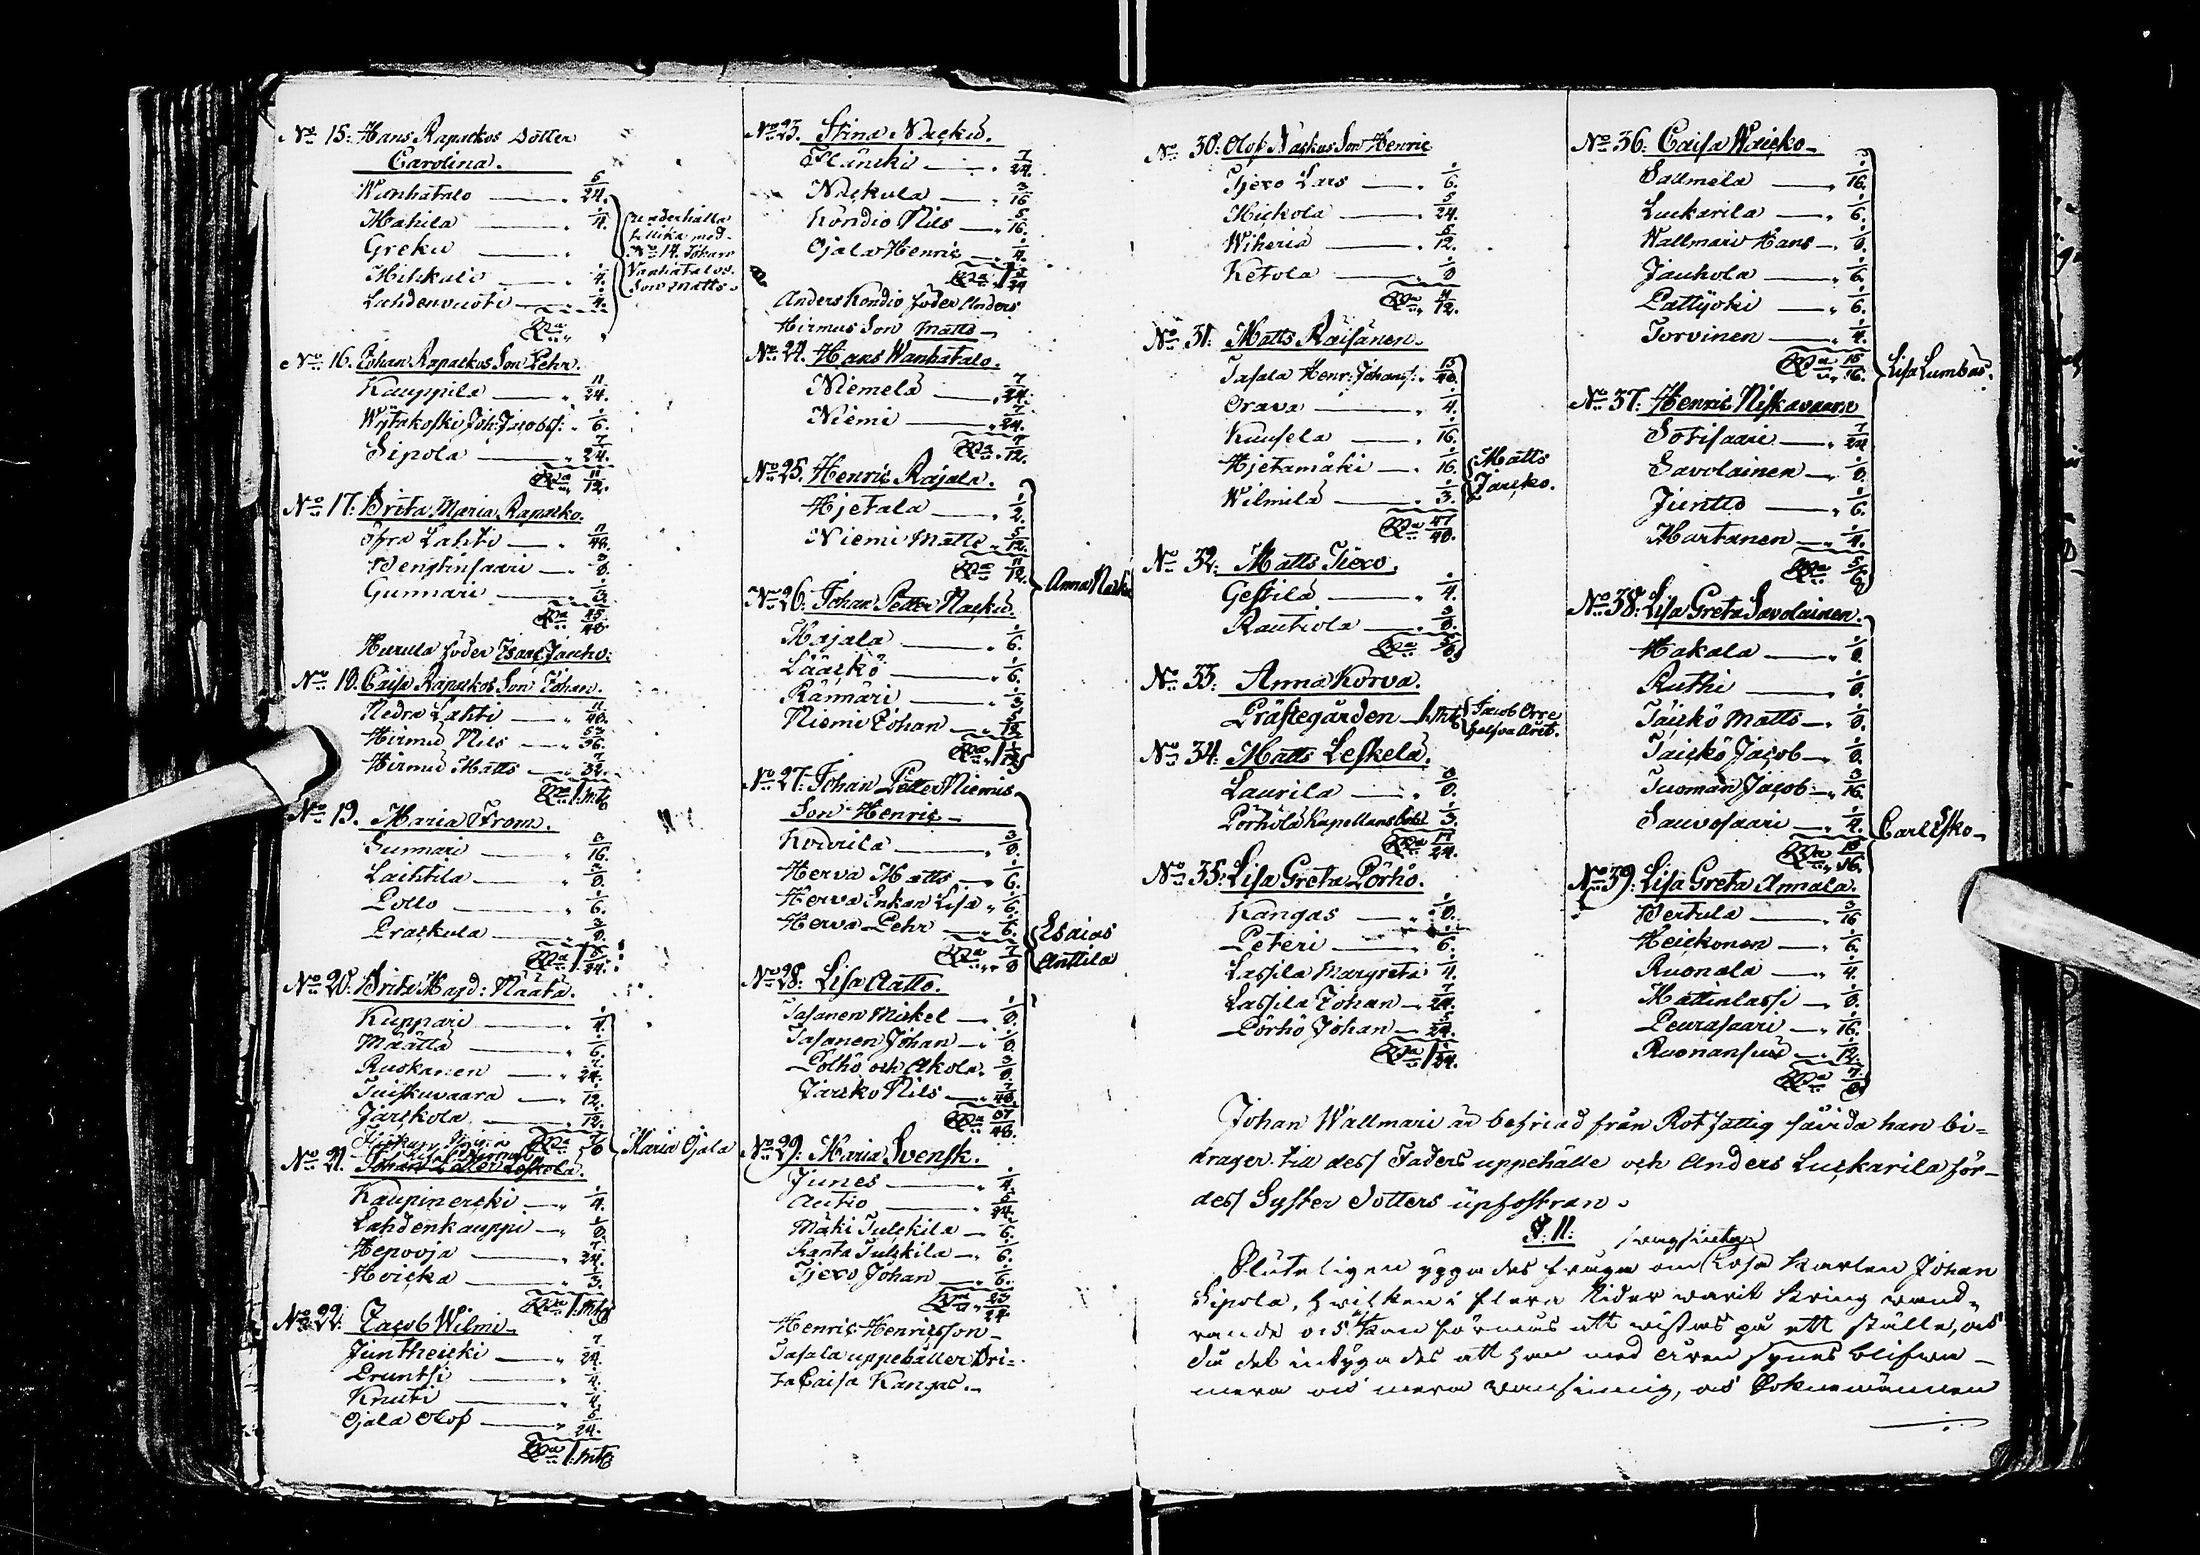 No 15: Hans Rapackos Dotter
Carolina.
Wanhatalo — " 5/24.
Mahila — " 1/4.
Greku — "
Mihkali — " 1/4.
Lahdenvuoti — " 1/4.
Sa
underhålla
tillika med
No 14. Johan
Vanhatalos
Son Matts.
No 16. Johan Rapackos Son Pehr.
Kauppila — " 11/24.
Wijtakoski Joh: Jacobs: " 1/6.
Sipola — " 7/24.
Sa " 11/12.
No 17: Brita Maria Rapacko.
Öfra Lahti — " 11/48.
Wenginsaari — " 3/8.
Gunnari — " 1/3.
Sa 45/48.
Hurula föder Isaac Jaucho:
No 18. Caisa Rapackos Son Johan.
Nedra Lahti — " 11/48.
Hirmu Nils — " 53/96.
Hirmu Matts — " 7/32.
Sa 1. mtl
No 19. Maria From.
Gunnari — " 3/16.
Laihtila — " 3/8.
Pollo — " 1/6.
Prackula — " 3/8.
Sa 1. 5/24.
No 20: Brita Magd: Määtä.
Kuppari — " 1/4.
Määttä — " 1/6.
Ruokanen — " 7/24.
Tuiskuvaara — " 1/12.
Järckola — " 1/12.
Sa 7/8
No 21. Johan Petter Leskelä.
Kaupinericki — " 1/4.
Lahdenkauppi — " 1/8.
Hepooja — " 7/24.
Hoicka — " 1/3.
Sa 1. mtl
Maria Ojala
No 22. Jacob Wilmi.
Juntheicki — " 7/24.
Pruntsi — " 1/4.
Knuti — " 1/4.
Ojala Olof — " 5/24.
Sa 1. mtl
No 23. Stina Nackü.
Fläncki — " 7/24.
Nackula — " 3/16
Kondio Nils — " 5/16.
Ojala Henric — " 1/4.
Sa 1 1/24
Anders Kondio föder Anders
Hirmus Son Matts —
No 24. Hans Wanhatalo.
Niemelä — " 7/24.
Niemi — " 7/24.
Sa " 7/12.
No 25. Henric Rajala.
Hjetala — " 1/2.
Niemi Matts " 5/12.
Sa 11/12.
No 26. Johan Petter Nackü.
Rajala — " 1/6.
Lääckö — " 1/6.
Rännäri — " 1/3.
Niemi Johan — " 5/12.
Sa " 1 1/12
Anna Nackü
No 27: Johan Petter Niemis
Son Henric —
Kourila — " 3/8.
Herva Matts — " 1/6.
Herva Enkan Lisa " 1/6.
Herva Pehr — " 1/6.
Sa " 7/8
Esaias
Anttila
No 28: Lisa Aatto.
Tasanen Mickel — " 1/8.
Tasanen Johan — " 1/8.
Polhö och Akola. 3/8.
Jäisko Nils — " 7/48.
Sa 37/48.
No 29: Maria Svensk.
Junes — " 1/4.
Autio — " 5/24.
Mäki Tulckila — " 1/6.
Ranta Tulckila — " 1/6.
Tjexo Johan — " 1/6.
Sa " 23/24
Henric Henricsson —
Tasala uppehåller Bri-
ta Caisa Kangas. —
No 30: Olof Nackus Son Henric
Tjexo Lars — " 1/6.
Hickola — " 5/24.
Wiheriä — " 5/12.
Ketola — " 1/8
Sa " 11/12.
No 31. Matts Raisänen.
Tasala Henr: Johans: " 15/48.
Orava — " 1/4.
Kuusela — " 1/16.
Hjetamäki — " 1/16.
Wilmilä — " 1/3.
Sa 47/48.
No 32: Matts Tiexo.
Gestilä — " 1/4.
Rautiola — " 3/8.
Sa " 5/8
Matts
Jaicko.
No 33: Anna Korva.
Prästegården — 1. mtl
Jacob Orre
Halfva året.
No 34: Matts Leskelä.
Laurila — " 3/8.
Pörhölä Kapellans bol: 1/3.
Sa 17/24.
No 35: Lisa Greta Pörhö.
Kangas — " 1/8.
Peteri — " 1/6.
Lassila Margreta 1/4.
Lassila Johan — " 7/24.
Pörhö Johan — " 5/24.
Sa 1 1/24.
No 36: Caisa Waicko —
Sallmela — " 3/16.
Luckarila — " 1/6.
Wallmari Hans — " 1/8.
Jauhola — " 1/6.
Pattijoki — " 1/6.
Torvinen — " 1/4.
Sa " 15/16.
Lisa Lumbus.
No 37: Henric Niskavaara
Sotisaari — " 7/24
Savolainen — " 1/8.
Juntto — " 1/6.
Martanen — " 1/4.
Sa " 5/6
No 38: Lisa Greta Savolainen.
Hakala — " 1/8.
Ruthi — " 1/8.
Täickö Matts — " 1/8.
Täickö Jacob — " 1/8.
Tuoman Jacob — " 3/16.
Sauvosaari — " 1/4.
Sa " 15/16.
Carl Esko —
No 39: Lisa Greta Annala.
Bertula — " 3/16
Heickonen — " 1/6.
Ruonala — " 1/4.
Mattinlassi — " 1/8.
Peurasaari — " 1/16.
Ruonansuü — " 1/12.
Sa " 7/8
Johan Wallmari är befriad från Rotfattig såvida han bi=
drager till dess Faders uppehälle och Anders Luckarila för
dess Syster Dotters upfostran.
§ 11:
Sluteligen yppades fråga om Losa Karlen Johan
Sipola, hvilken i flera tider warit kring wand-
rande och ei kan förmås att wistas på ett ställe, och
då det intygades att han med åren synes blifwa
mera och mera wansinnig, och Soknemännen